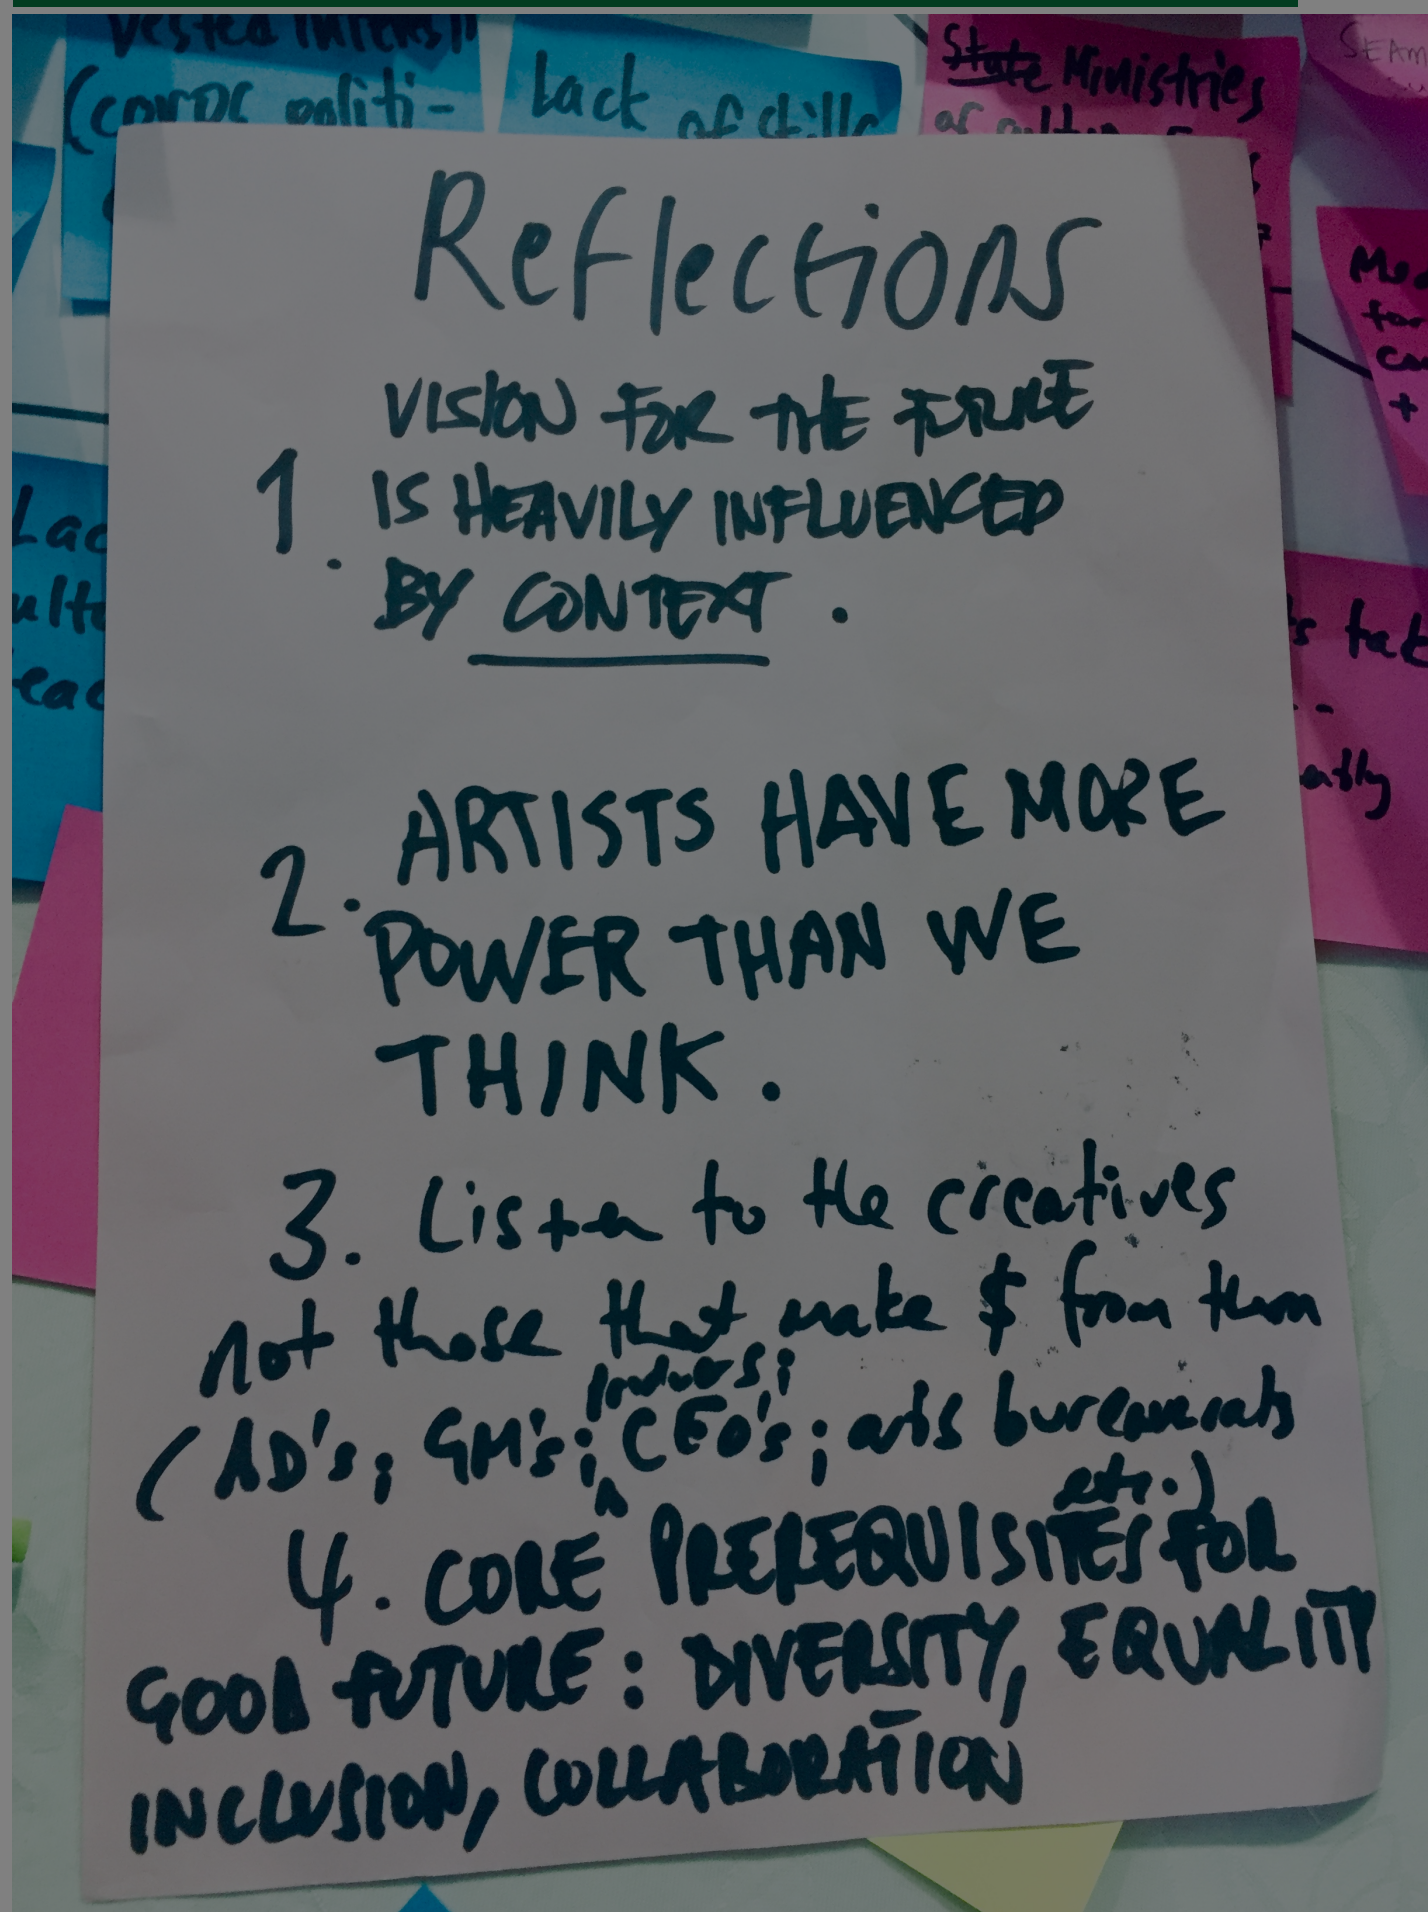 Vested
politi-
Lack of skills
State Ministries
of
SEAM
for
+
Reflections
1. VISION FOR THE FUTURE
IS HEAVILY INFLUENCED
BY CONTEXT.
2. ARTISTS HAVE MORE
POWER THAN WE
THINK.
3. Listen to the creatives
not those that make $ from them
(AD's; GM's; producers; CEO's; arts bureaucrats
etc.)
4. CORE PREREQUISITES FOR
GOOD FUTURE: DIVERSITY, EQUALITY
INCLUSION, COLLABORATION